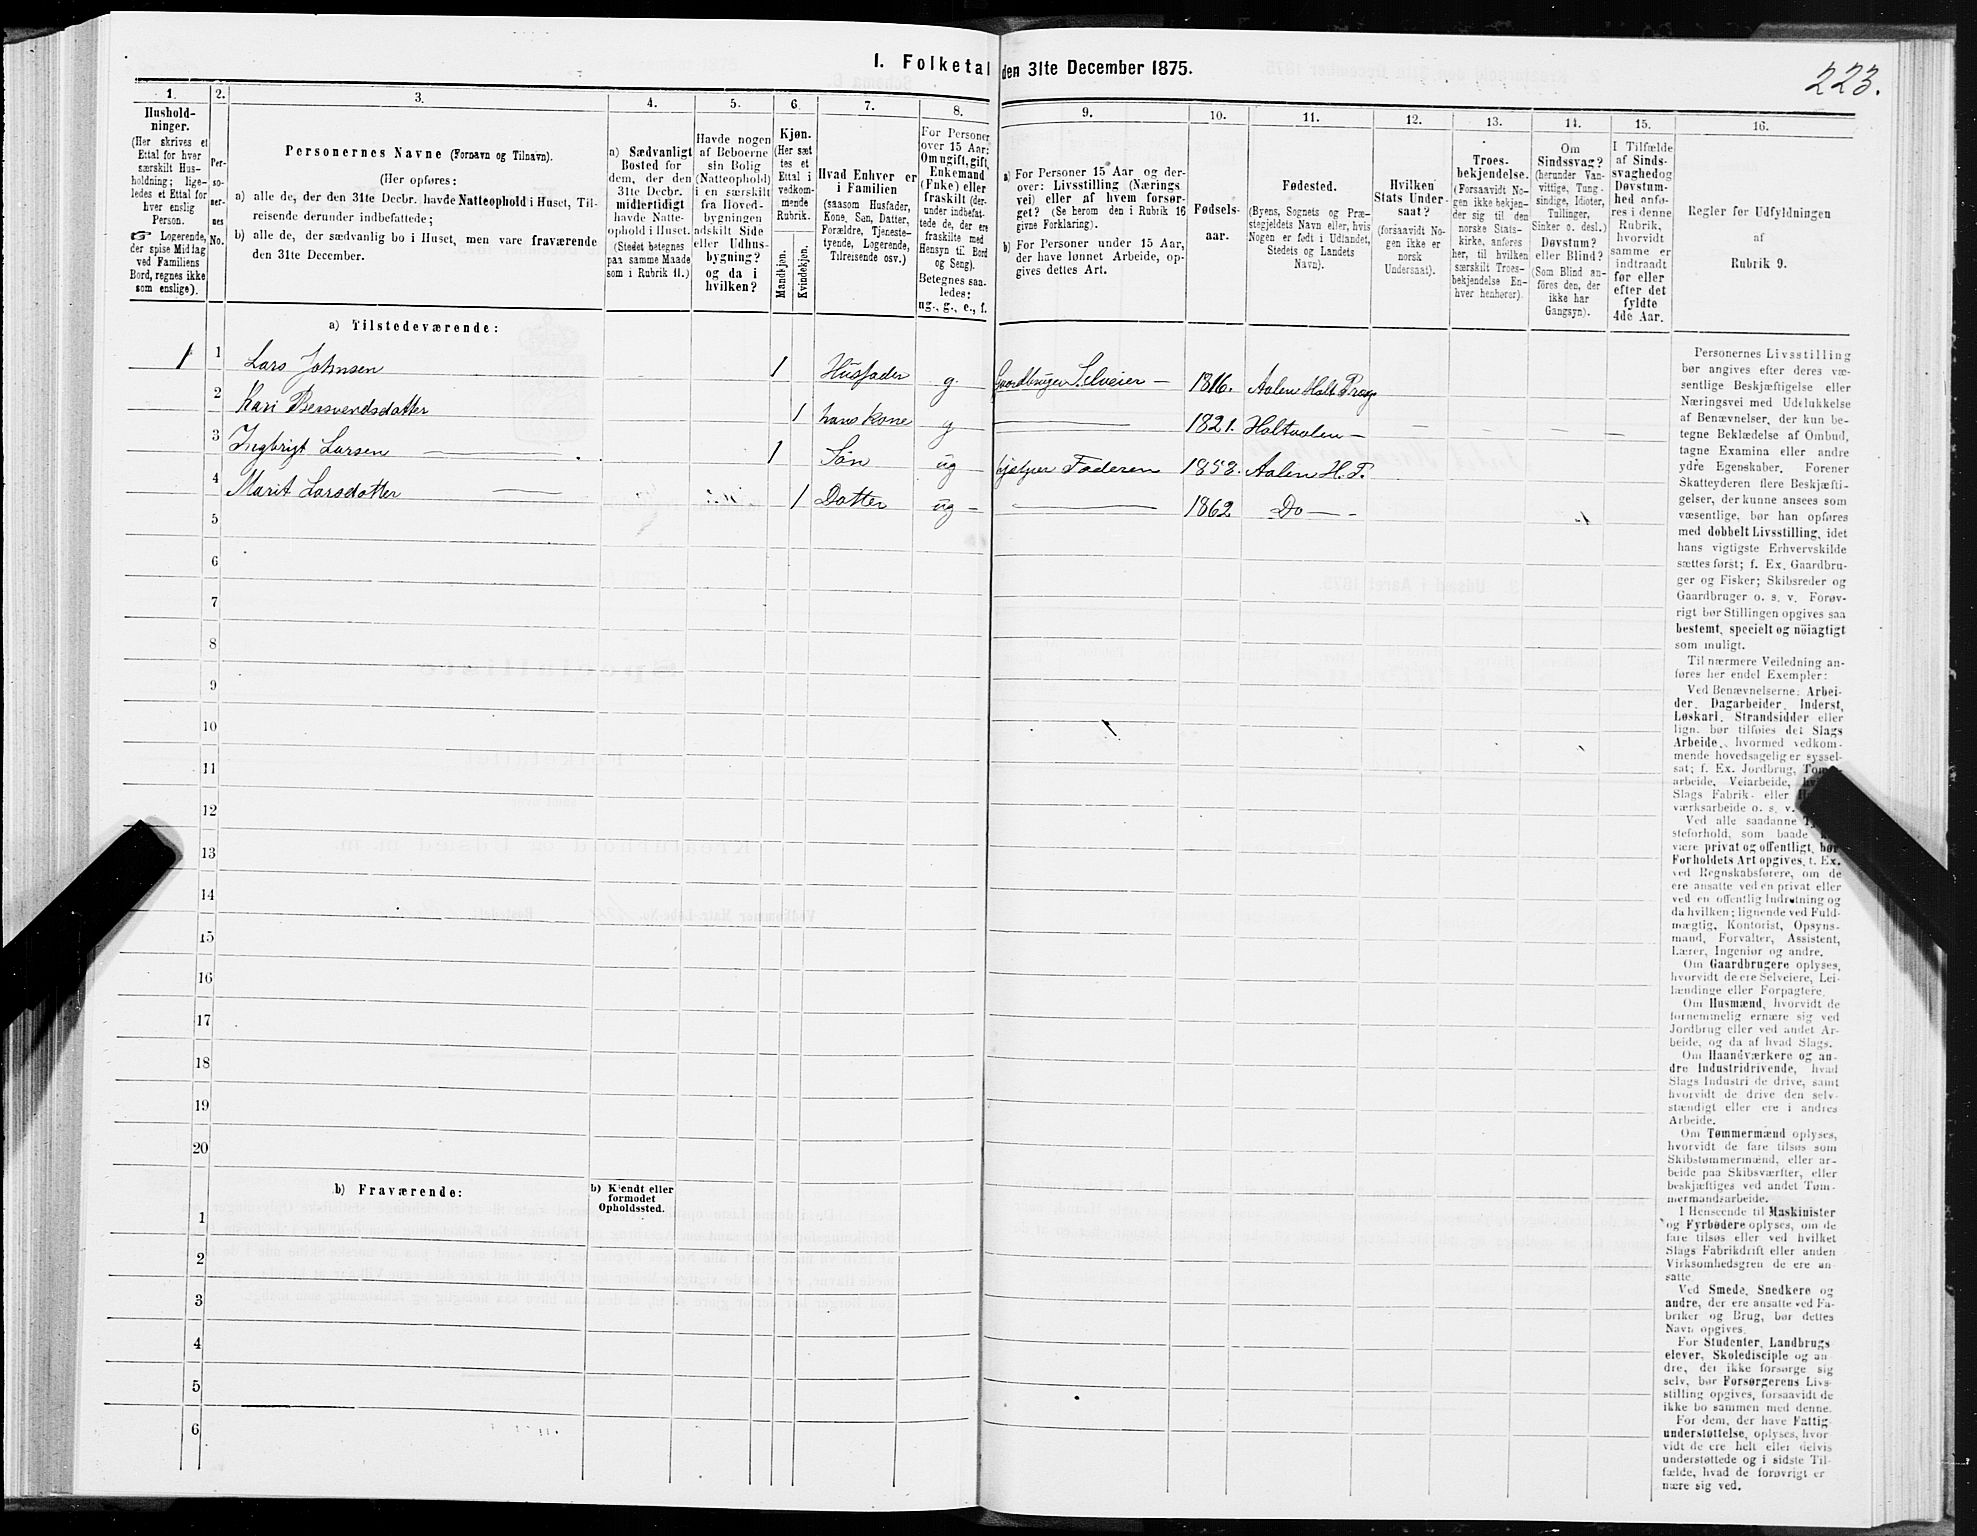 I. Folketal den 31te December 1875.
223.
1.
Hushold-
ninger.
(Her skrives et
Ettal for hver
særskilt Hus-
holdning; lige-
ledes et Ettal for
hver enslig
Person.
☞ Logerende,
der spise Middag
ved Familiens
Bord, regnes ikke
som enslige).
2.
Per-
so-
ner-
nes
No.
3.
Personernes Navne (Fornavn og Tilnavn).
(Her opføres:
a) alle de, der den 31te Decbr. havde Natteophold i Huset, Til-
reisende derunder indbefattede;
b) alle de, der sædvanlig bo i Huset, men vare fraværende
den 31te December.
4.
a) Sædvanligt
Bosted for
dem, der den
31te Decbr.
midlertidigt
havde Natte-
ophold i Huset.
(Stedet betegnes
paa samme Maade
som i Rubrik 11.)
5.
Havde nogen
af Beboerne
sin Bolig
(Natteophold)
i en særskilt
fra Hoved-
bygningen
adskilt Side
eller Udhus-
bygning?
og da i
hvilken?
6.
Kjøn.
(Her sæt
tes et
Ettal i
vedkom-
mende
Rubrik.
Mandkjøn.
Kvindekjøn.
7.
Hvad Enhver er
i Familien
(saasom Husfader,
Kone, Søn, Datter,
Forældre, Tjeneste-
tyende, Logerende,
Tilreisende osv.)
8.
For Personer
over 15 Aar:
Om ugift, gift,
Enkemand
(Enke) eller
fraskilt (der-
under indbefat-
tede de, der ere
fraskilte med
Hensyn til Bord
og Seng).
Betegnes saa-
ledes:
ug., g., e., f.
9.
a) For Personer 15 Aar og der-
over: Livsstilling (Nærings
vei) eller af hvem forsør-
get? (Se herom den i Rubrik 16
givne Forklaring).
b) For Personer under 15 Aar,
der have lønnet Arbeide, op-
gives dettes Art.
10.
Fødsels-
aar.
11.
Fødested.
(Byens, Sognets og Præ-
stegjeldets Navn eller, hvis
Nogen er født i Udlandet,
Stedets og Landets
Navn).
12.
Hvilken
Stats Under-
saat?
(forsaavidt No-
gen ikke er
norsk
Undersaat).
13.
Troes-
bekjendelse.
(Forsaavidt No-
gen ikke bekjen-
der sig til den
norske Stats-
kirke, anføres
her, til hvilken
særskilt Troes-
bekjendelse En-
hver henhører).
14.
Om
Sindssvag?
(herunder Van-
vittige, Tung-
sindige, Idioter,
Tullinger,
Sinker o. desl.)
Døvstum?
eller Blind?
(Som Blind an-
føres den, der
ikke har
Gangsyn).
15.
I Tilfælde
af Sinds-
svaghed og
Døvstum-
hed anfø-
res i denne
Rubrik,
hvorvidt
samme er
indtraadt
før eller
efter det
fyldte
4de Aar.
16.
Regler før Udfyldningen
af
Rubrik 9.
a) Tilstedeværende:
1 1 Lars Johnsen 1 Husfader g. Gaardbruger Selveier — 1816. Aalen Holt. Præg
2 Kari Bersvendsdatter 1 hans Kone g — 1821. Holtaalen —
3 Ingbrigt Larsen — 1 Søn ug hjelper Faderen 1853. Aalen H. P.
4 Marit Larsdatter — 1 Datter ug — 1862 Do —
5
6
7
8
9
10
11
12
13
14
15
16
17
18
19
20
b) Fraværende:
b) Kjendt eller
formodet
Opholdssted.
1
2
3
4
5
6
Personernes Livsstilling
bør angives efter deres væ-
sentlige Beskjæftigelse eller
Næringsvei med Udelukkelse
af Benævnelser, der kun be-
tegne Beklædelse af Ombud,
tagne Examina eller andre
ydre Egenskaber. Forener
Skatteyderen flere Beskjæfti-
gelser, der kunne ansees som
væsentlige, bør han opføres
med dobbelt Livsstilling, idet
hans vigtigste Erhvervskilde
sættes først; f. Ex. Gaardbru-
ger og Fisker; Skibsreder og
Gaardbruger o. s. v. Forøv-
rigt bør Stillingen opgives saa
bestemt, specielt og nöiagtigt
som muligt.
Til nærmere Veiledning an-
føres her endel Exempler:
Ved Benævnelserne: Arbei-
der, Dagarbeider, Inderst,
Løskarl, Strandsidder eller
lign. bør tilføies det Slags
Arbeide, hvormed vedkom-
mende hovedsagelig er syssel-
sat; f. Ex. Jordbrug, Tøm-
arbeide, Veiarbeide,
Slags Fabrik- eller
værksarbeide o. s. v.
Ved alle saadanne
steforhold, som baade
være privat og offentligt, bør
Forholdets Art opgives, t. Ex.
ved Regnskabsførere, om de
ere ansatte ved en privat eller
ved en offentlig Indretning og
da hvilken; lignende ved Fuld-
mægtig, Kontorist, Opsyns-
mand, Forvalter, Assistent,
Lærer, Ingeniør og andre.
Om Gaardbrugere oplyses,
hvorvidt de ere Selveiere, Lei-
lændinge eller Forpagtere.
Om Husmænd, hvorvidt de
fornemmelig ernære sig ved
Jordbrug eller ved andet Ar-
beide, og da af hvad Slags.
Om Haandværkere og an-
dre Industridrivende, hvad
Slags Industri de drive, samt
hvorvidt de drive den selv-
stændigt eller ere i andres
Arbeide.
Om Tømmermænd oplyses,
hvorvidt de fare tilsøs som
Skibstømmermænd, eller ar-
beide paa Skibsværfter, eller
beskjæftiges ved andet Tøm-
mermandsarbeide.
I Henseende til Maskinister
og Fyrbødere oplyses, om de
fare tilsøs eller ved hvilket
Slags Fabrikdrift eller anden
Virksomhedsgren de ere an-
satte.
Ved Smede, Snedkere og
andre, der ere ansatte ved Fa-
briker og Brug, bør dettes
Navn opgives.
For Studenter, Landbrugs
elever, Skoledisciple og an-
dre, der ikke forsørge sig
selv, bør Forsørgerens Livs-
stilling opgives, forsaavidt de
ikke bo sammen med denne.
For dem, der have Fattig-
understøttelse, oplyses, hvor
vidt de ere helt eller delvis
understøttede og i sidste Til-
fælde, hvad de forøvrigt er
nære sig ved.